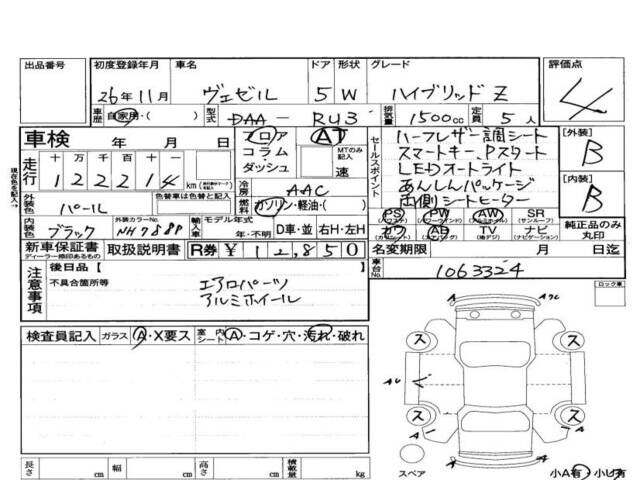 出品番号 初度登録年月 車名 ドア 形状 グレード 評価点
26年11月 ヴェゼル 5 W ハイブリッド Z 4
車歴 自家用・( ) 型式 DAA- RU3 排気量 1500cc 定員 5人
車検 年 月 日 フロア AT
コラム・ MTのみ記入
ダッシュ 速
走行 十 万 千 百 十 一
1 2 2 2 1 4 km
冷房 AAC
外装色 パール 色替車は色替と記入 燃料 ガソリン・軽油・( )
内装色 ブラック 外装カラーNo. NH788P 輸入車 モデル年式 年・不明 D車・並 右H・左H
セールスポイント
ハーフレザー調シート
スマートキー、Pスタート
LEDオートライト
あんしんパッケージ
両側シートヒーター
[外装] B
[内装] B
PS PW AW SR
(パワステ) (パワーウィンド) (アルミホイル) (サンルーフ)
カワ AB TV ナビ
(カワシート) (エアバッグ) (地デジ) (ナビゲーション)
純正品のみ丸印
新車保証書 取扱説明書 R券 ¥12,850
ディーラー捺印あるもの
名変期限 月 日迄
車台No. 1063324
現在色を記入→
注意事項
後日品【 】
不具合箇所等 エアロパーツ
アルミホイール
ロック車
検査員記入 ガラス A・X要ス 室内シート A・コゲ・穴・汚れ・破れ
ス ス
AU
ス ス
A A
スペア 小A有 小U有
長さ cm 幅 cm 高さ cm 積載量 kg